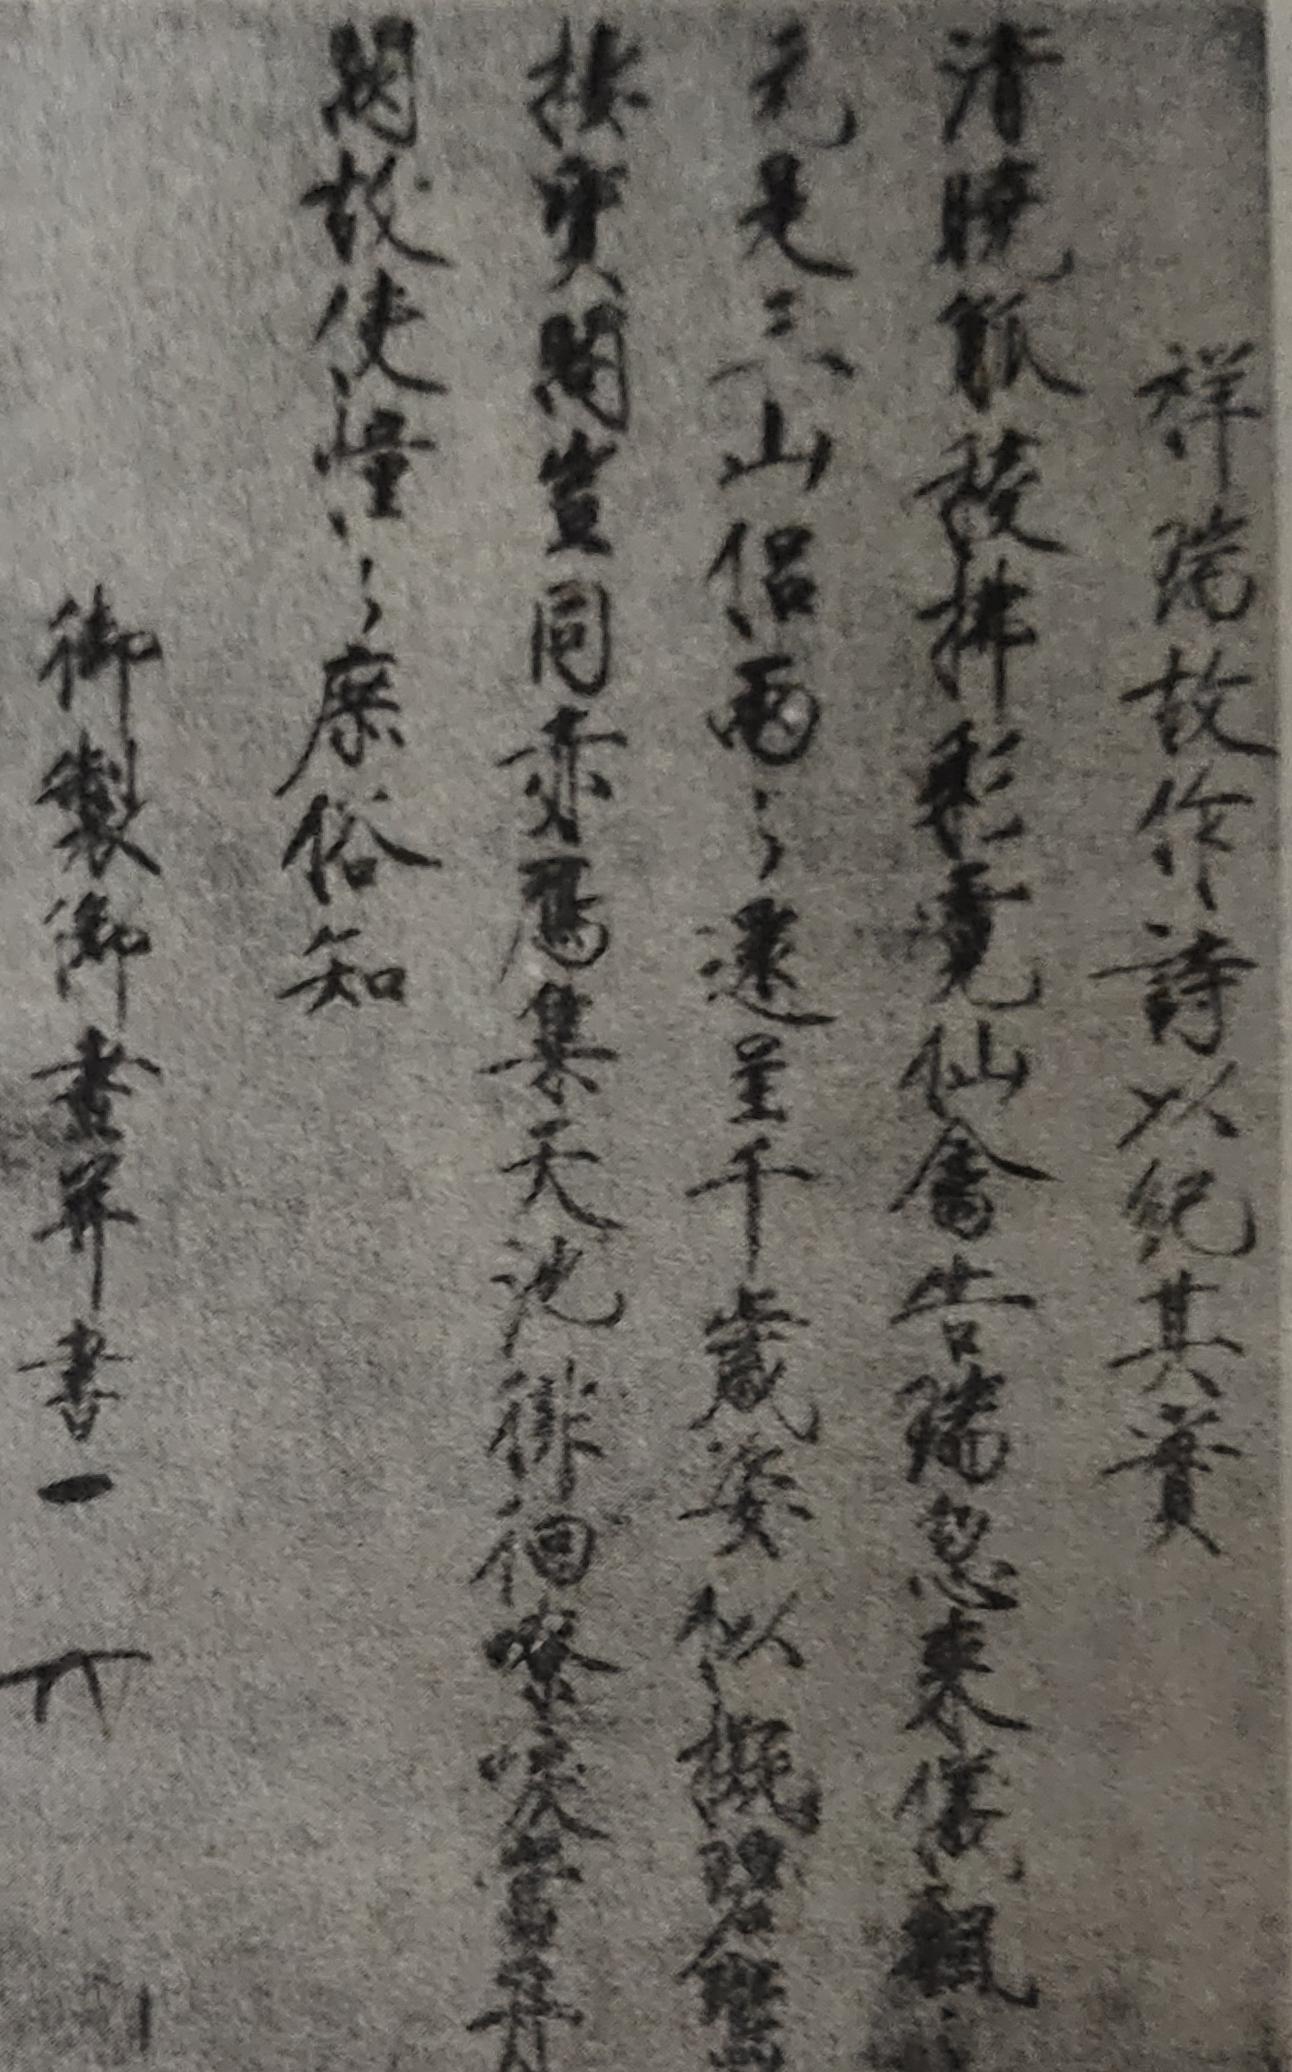 祥瑞故作詩以紀其實
清曉觚稜拂彩霓仙禽告瑞忽來儀飄〻
元是三山侶兩〻還呈千歲姿似擬碧鸞
捿寶閣豈同赤鴈集天池徘徊嘹唳當丹
闕故使憧〻庶俗知
御製御畫并書